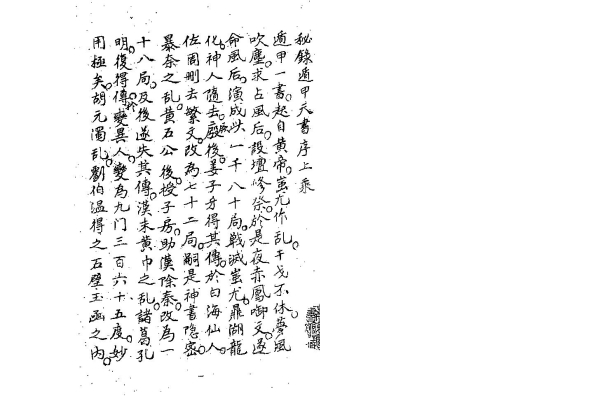 秘錄遁甲天書序上乘
遁甲一書起自黃帝蚩尤作乱干戈不休夢風
吹塵求占風后設壇修祭於是夜赤鳳啣文遂
命風后演成此一千八十局戰滅蚩尤鼎湖龍
化神人隨去厥後姜子牙得其傳於白海仙人
佐周刪去繁文改為七十二局嗣是神書隐密
暴秦之乱黃五公後授子房助漢除秦改為一
十八局及後遂失其傳漢末黃巾之乱諸葛孔
明復得傳於異人變為九门三百六十五度妙
用極矣胡元濁乱劉伯温得之石壁玉函之內